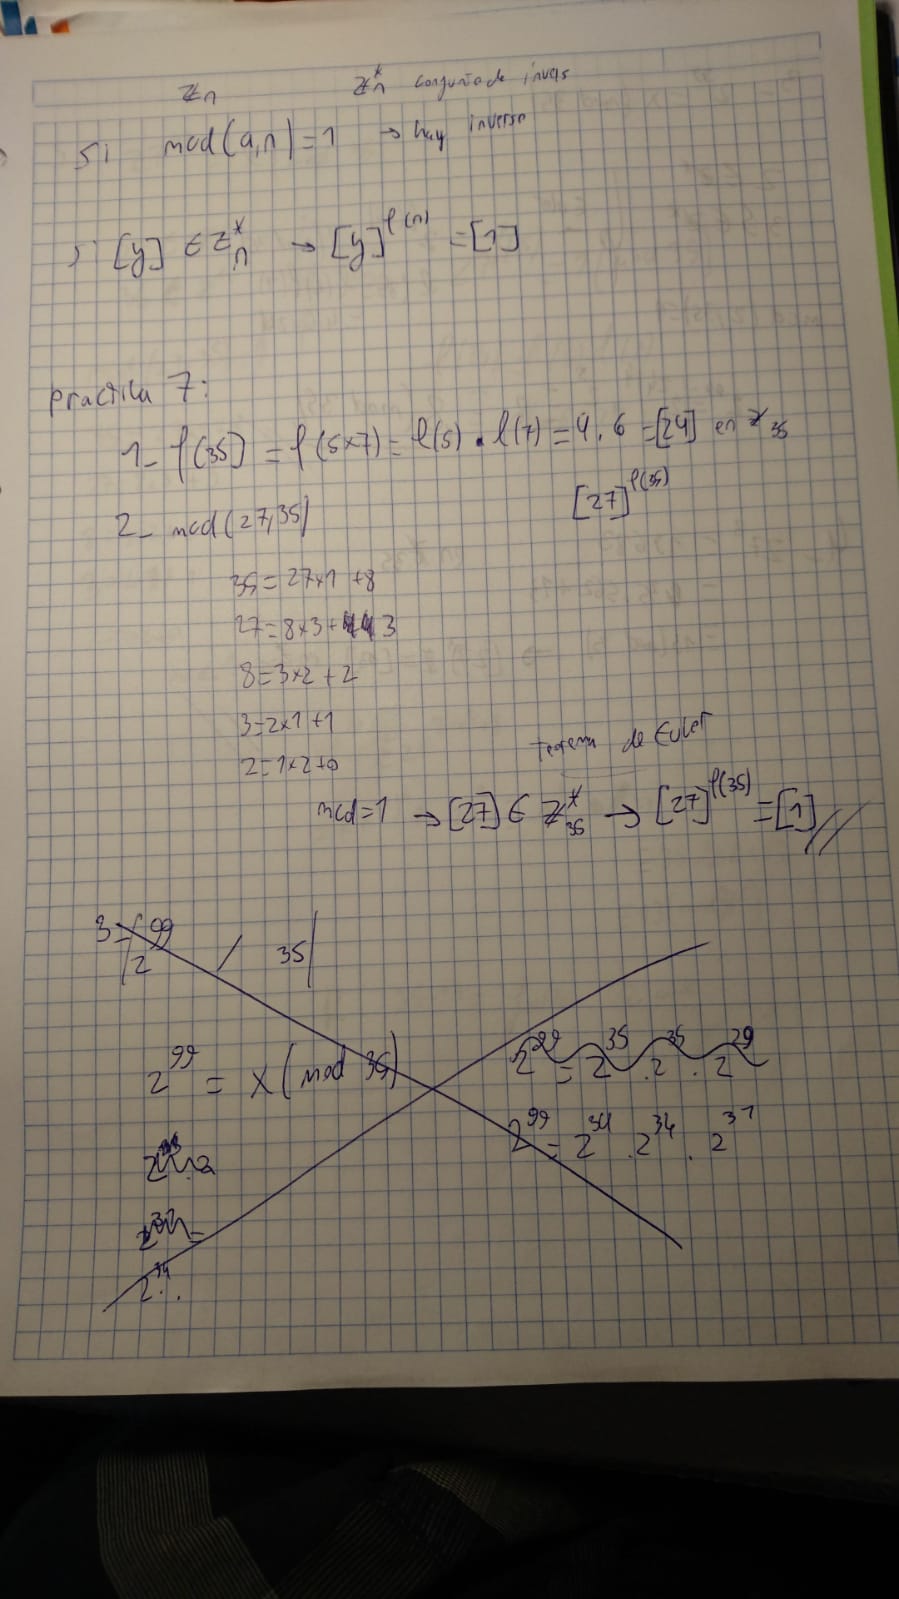 Zn Z*n conjunto de invers
Si mcd(a,n)=1 → hay inverso
[y] ∈ Z*n → [y]^φ(n) = [1]
practica 7:
1_ φ(35) = φ(5x7) = φ(5) · φ(7) = 4 . 6 = [24] en Z35
2_ mcd(27,35) [27]^φ(35)
35 = 27x1 + 8
27 = 8x3 + 3
8 = 3x2 + 2
3 = 2x1 + 1
2 = 1x2 + 0
teorema de Euler
mcd = 1 → [27] ∈ Z*35 → [27]^φ(35) = [1]
3- (2^99 / 35)
2^99 = x (mod 35) 2^99 = 2^35 . 2^35 . 2^29
2^99 = 2^34 . 2^34 . 2^31
2^34 .